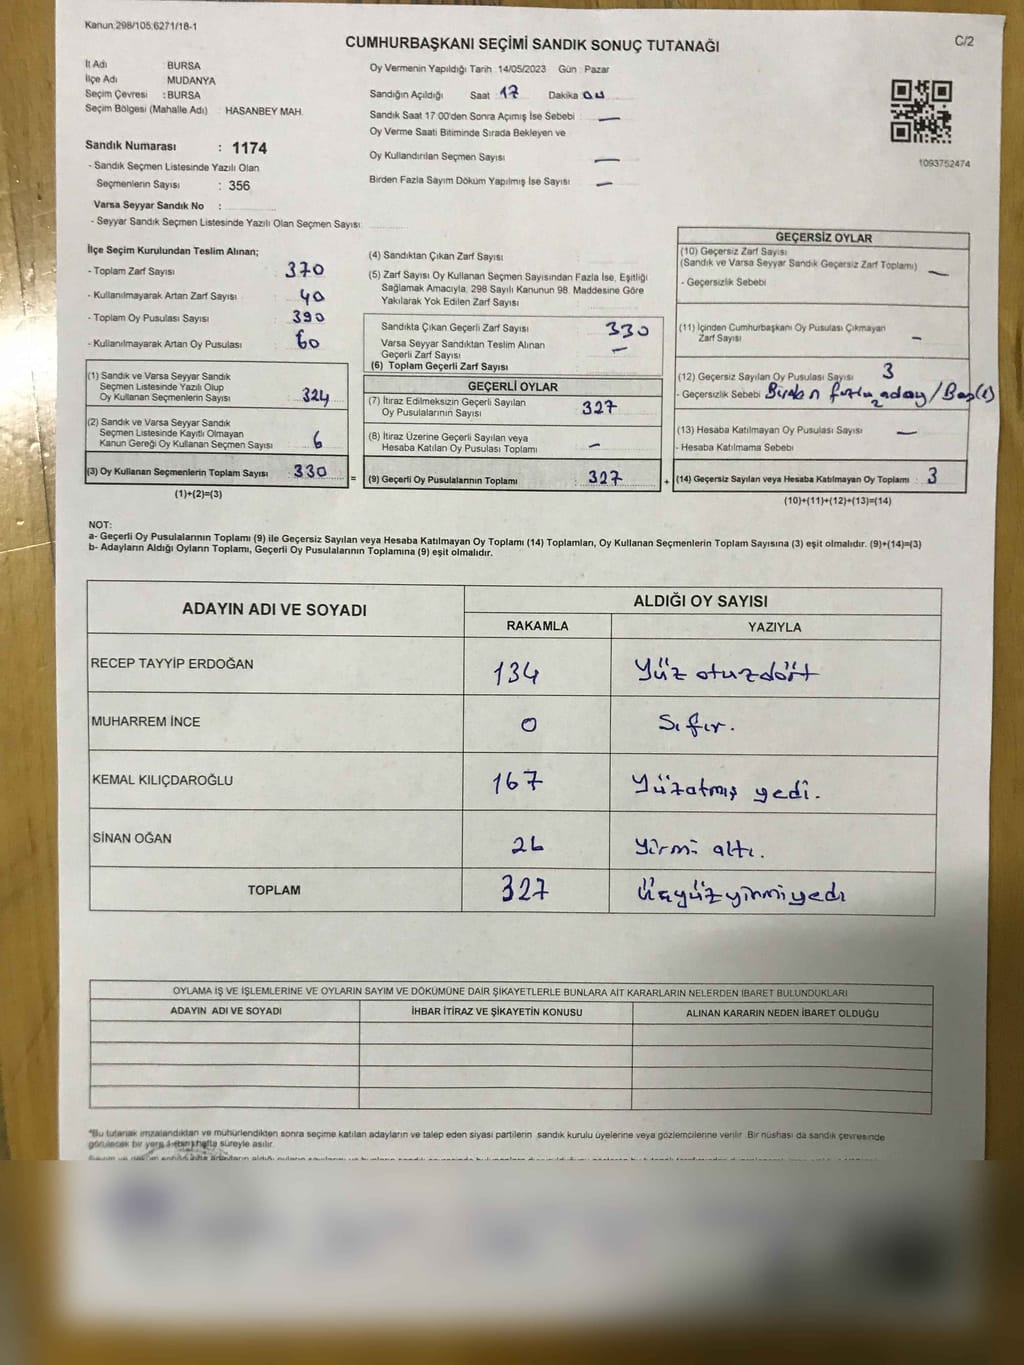 Kanun:298/105;6271/18-1
C/2
CUMHURBAŞKANI SEÇİMİ SANDIK SONUÇ TUTANAĞI
İl Adı : BURSA
İlçe Adı : MUDANYA
Seçim Çevresi : BURSA
Seçim Bölgesi (Mahalle Adı) : HASANBEY MAH.
Sandık Numarası : 1174
- Sandık Seçmen Listesinde Yazılı Olan
Seçmenlerin Sayısı : 356
Varsa Seyyar Sandık No :
- Seyyar Sandık Seçmen Listesinde Yazılı Olan Seçmen Sayısı:
Oy Vermenin Yapıldığı Tarih : 14/05/2023 Gün : Pazar
Sandığın Açıldığı Saat 17 Dakika 00
Sandık Saat 17:00'den Sonra Açımış İse Sebebi : —
Oy Verme Saati Bitiminde Sırada Bekleyen ve
Oy Kullandırılan Seçmen Sayısı —
Birden Fazla Sayım Döküm Yapılmış İse Sayısı : —
1093752474
İlçe Seçim Kurulundan Teslim Alınan;
- Toplam Zarf Sayısı : 370
- Kullanılmayarak Artan Zarf Sayısı : 40
- Toplam Oy Pusulası Sayısı : 390
- Kullanılmayarak Artan Oy Pusulası : 60
(1) Sandık ve Varsa Seyyar Sandık
Seçmen Listesinde Yazılı Olup
Oy Kullanan Seçmenlerin Sayısı : 324
(2) Sandık ve Varsa Seyyar Sandık
Seçmen Listesinde Kayıtlı Olmayan
Kanun Gereği Oy Kullanan Seçmen Sayısı : 6
(3) Oy Kullanan Seçmenlerin Toplam Sayısı : 330
(1)+(2)=(3)
=
(4) Sandıktan Çıkan Zarf Sayısı :
(5) Zarf Sayısı Oy Kullanan Seçmen Sayısından Fazla İse, Eşitliği
Sağlamak Amacıyla, 298 Sayılı Kanunun 98. Maddesine Göre
Yakılarak Yok Edilen Zarf Sayısı :
Sandıkta Çıkan Geçerli Zarf Sayısı : 330
Varsa Seyyar Sandıktan Teslim Alınan
Geçerli Zarf Sayısı : —
(6) Toplam Geçerli Zarf Sayısı :
GEÇERLİ OYLAR
(7) İtiraz Edilmeksizin Geçerli Sayılan
Oy Pusulalarının Sayısı : 327
(8) İtiraz Üzerine Geçerli Sayılan veya
Hesaba Katılan Oy Pusulası Toplamı : —
(9) Geçerli Oy Pusulalarının Toplamı : 327
+
GEÇERSİZ OYLAR
(10) Geçersiz Zarf Sayısı
(Sandık ve Varsa Seyyar Sandık Geçersiz Zarf Toplamı) : —
- Geçersizlik Sebebi :
(11) İçinden Cumhurbaşkanı Oy Pusulası Çıkmayan
Zarf Sayısı : —
(12) Geçersiz Sayılan Oy Pusulası Sayısı : 3
- Geçersizlik Sebebi
(13) Hesaba Katılmayan Oy Pusulası Sayısı : —
- Hesaba Katılmama Sebebi :
(14) Geçersiz Sayılan veya Hesaba Katılmayan Oy Toplamı : 3
(10)+(11)+(12)+(13)=(14)
NOT:
a- Geçerli Oy Pusulalarının Toplamı (9) ile Geçersiz Sayılan veya Hesaba Katılmayan Oy Toplamı (14) Toplamları, Oy Kullanan Seçmenlerin Toplam Sayısına (3) eşit olmalıdır. (9)+(14)=(3)
b- Adayların Aldığı Oyların Toplamı, Geçerli Oy Pusulalarının Toplamına (9) eşit olmalıdır.
ADAYIN ADI VE SOYADI
ALDIĞI OY SAYISI
RAKAMLA YAZIYLA
RECEP TAYYİP ERDOĞAN 134 Yüz otuzdört
MUHARREM İNCE 0 Sıfır.
KEMAL KILIÇDAROĞLU 167 Yüzatmış yedi.
SİNAN OĞAN 26 Yirmi altı.
TOPLAM 327 Üçyüzyirmiyedi
OYLAMA İŞ VE İŞLEMLERİNE VE OYLARIN SAYIM VE DÖKÜMÜNE DAİR ŞİKAYETLERLE BUNLARA AİT KARARLARIN NELERDEN İBARET BULUNDUKLARI
ADAYIN ADI VE SOYADI İHBAR İTİRAZ VE ŞİKAYETİN KONUSU ALINAN KARARIN NEDEN İBARET OLDUĞU
*Bu tutanak imzalandıktan ve mühürlendikten sonra seçime katılan adayların ve talep eden siyasi partilerin sandık kurulu üyelerine veya gözlemcilerine verilir. Bir nüshası da sandık çevresinde
görülecek bir yere 1 (bir) hafta süreyle asılır.